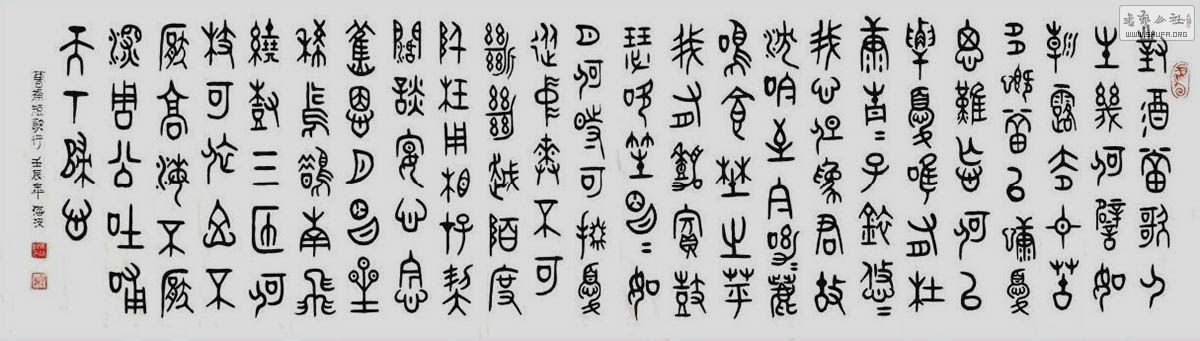 對酒當歌人
生幾何譬如
朝露去日苦
多嘅當以慷憂
思難忘何以
解憂唯有杜
康青=子衿悠=
我心但為君故
沈吟至今呦=鹿
鳴食埜之苹
我有嘉賓鼓
瑟吹笙明=如
月何時可掇憂
從中來不可
斷絕越陌度
阡枉用相存契
闊談宴心念
舊恩月明星
稀烏鵲南飛
繞樹三匝何
枝可依山不
厭高海不厭
深周公吐哺
天下歸心
曹操短歌行 壬辰年
书法公社
WWW.SHUFA.ORG